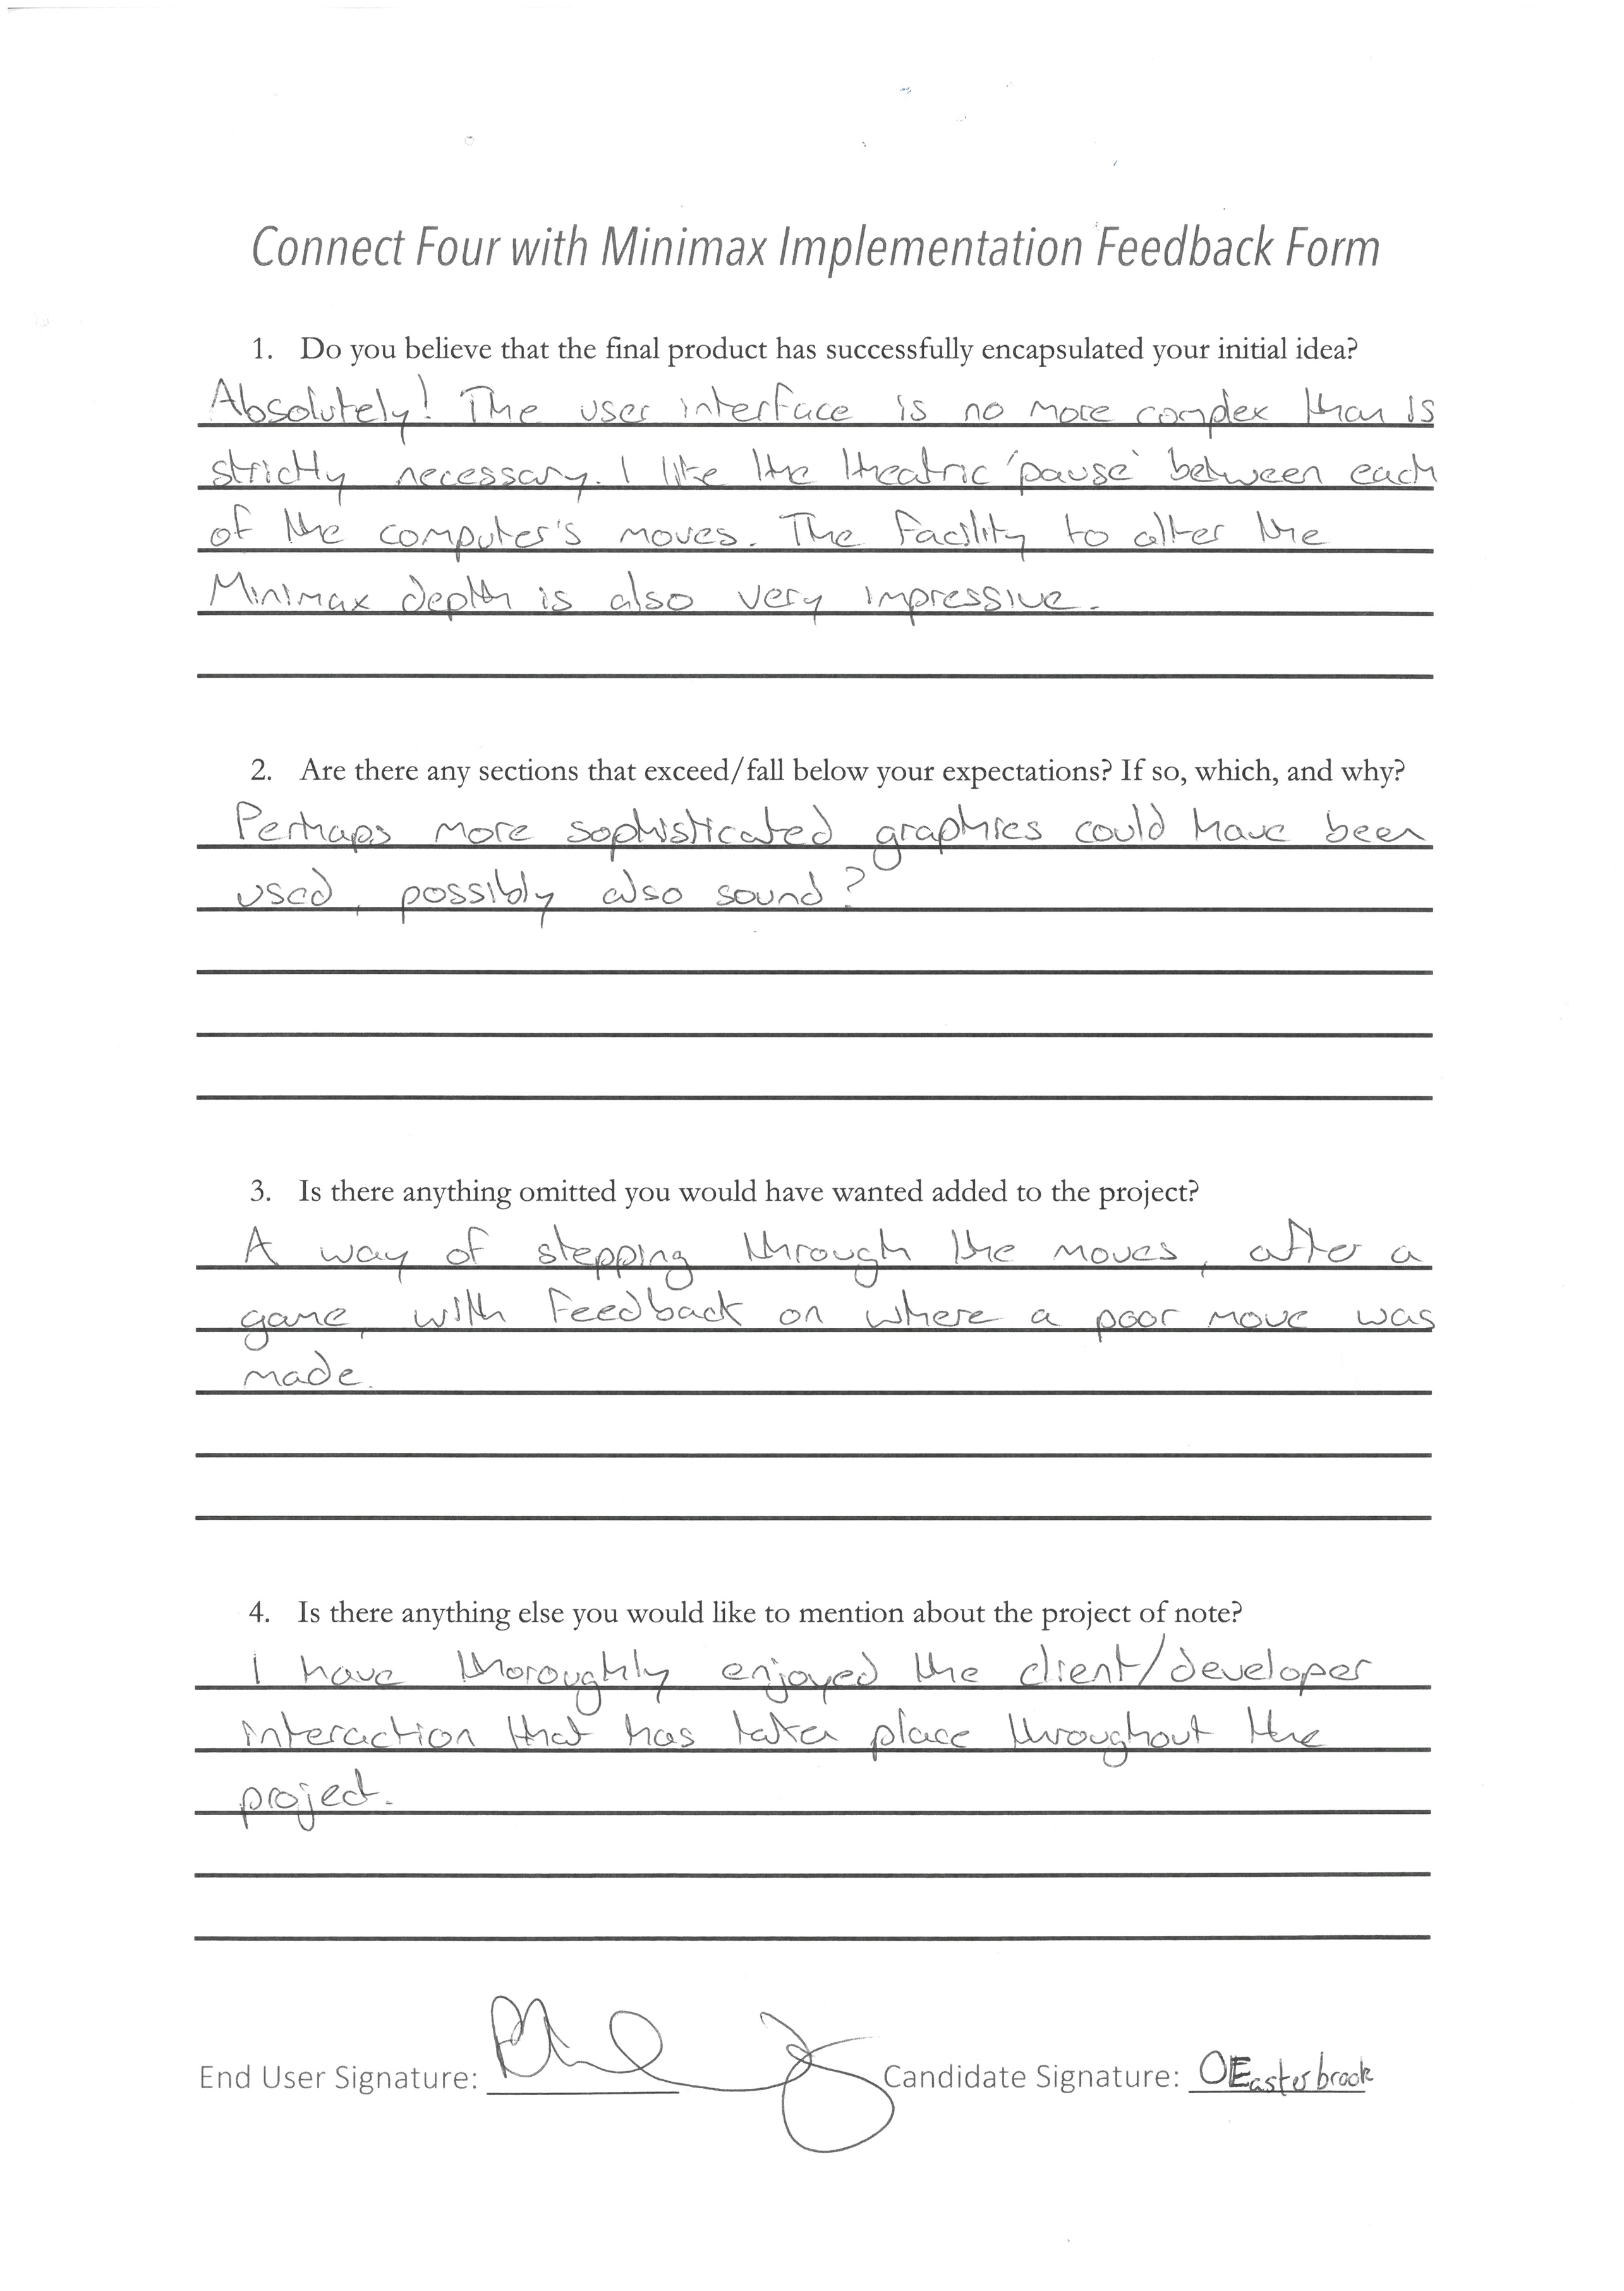 Connect Four with Minimax Implementation Feedback Form
1. Do you believe that the final product has successfully encapsulated your initial idea?
Absolutely! The user interface is no more complex than is
strictly necessary. I like the theatric 'pause' between each
of the computer's moves. The facility to alter the
Minimax depth is also very impressive.
2. Are there any sections that exceed/fall below your expectations? If so, which, and why?
Perhaps more sophisticated graphics could have been
used, possibly also sound?
3. Is there anything omitted you would have wanted added to the project?
A way of stepping through the moves, after a
game, with feedback on where a poor move was
made.
4. Is there anything else you would like to mention about the project of note?
I have thoroughly enjoyed the client/developer
interaction that has taken place throughout the
project.
End User Signature: Candidate Signature: OEasterbrook